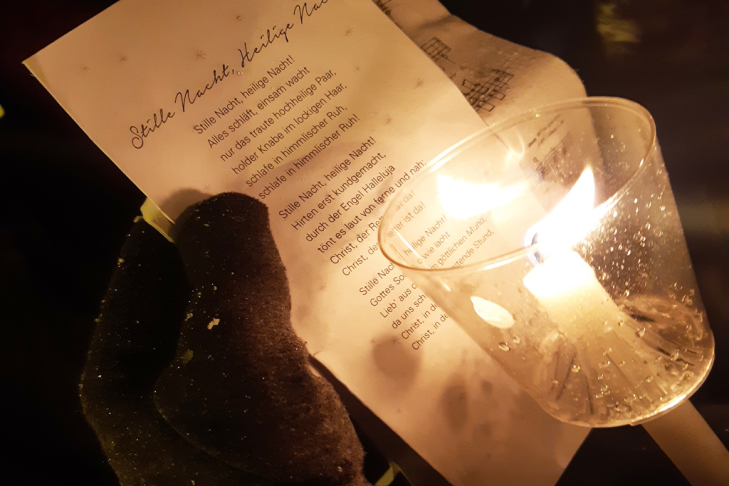 Stille Nacht, Heilige Nac
Stille Nacht, heilige Nacht!
Alles schläft, einsam wacht
nur das traute hochheilige Paar,
holder Knabe im lockigen Haar,
schlafe in himmlischer Ruh,
schlafe in himmlischer Ruh!
Stille Nacht, heilige Nacht!
Hirten erst kundgemacht,
durch der Engel Halleluja
tönt es laut von ferne und nah:
Christ, der Re da!
Christ, de er ist da!
Stille Nac heilige Nacht!
Gottes So wie lacht
Lieb' aus göttlichen Mund,
da uns sch tende Stund.
Christ, in d
Christ, in de